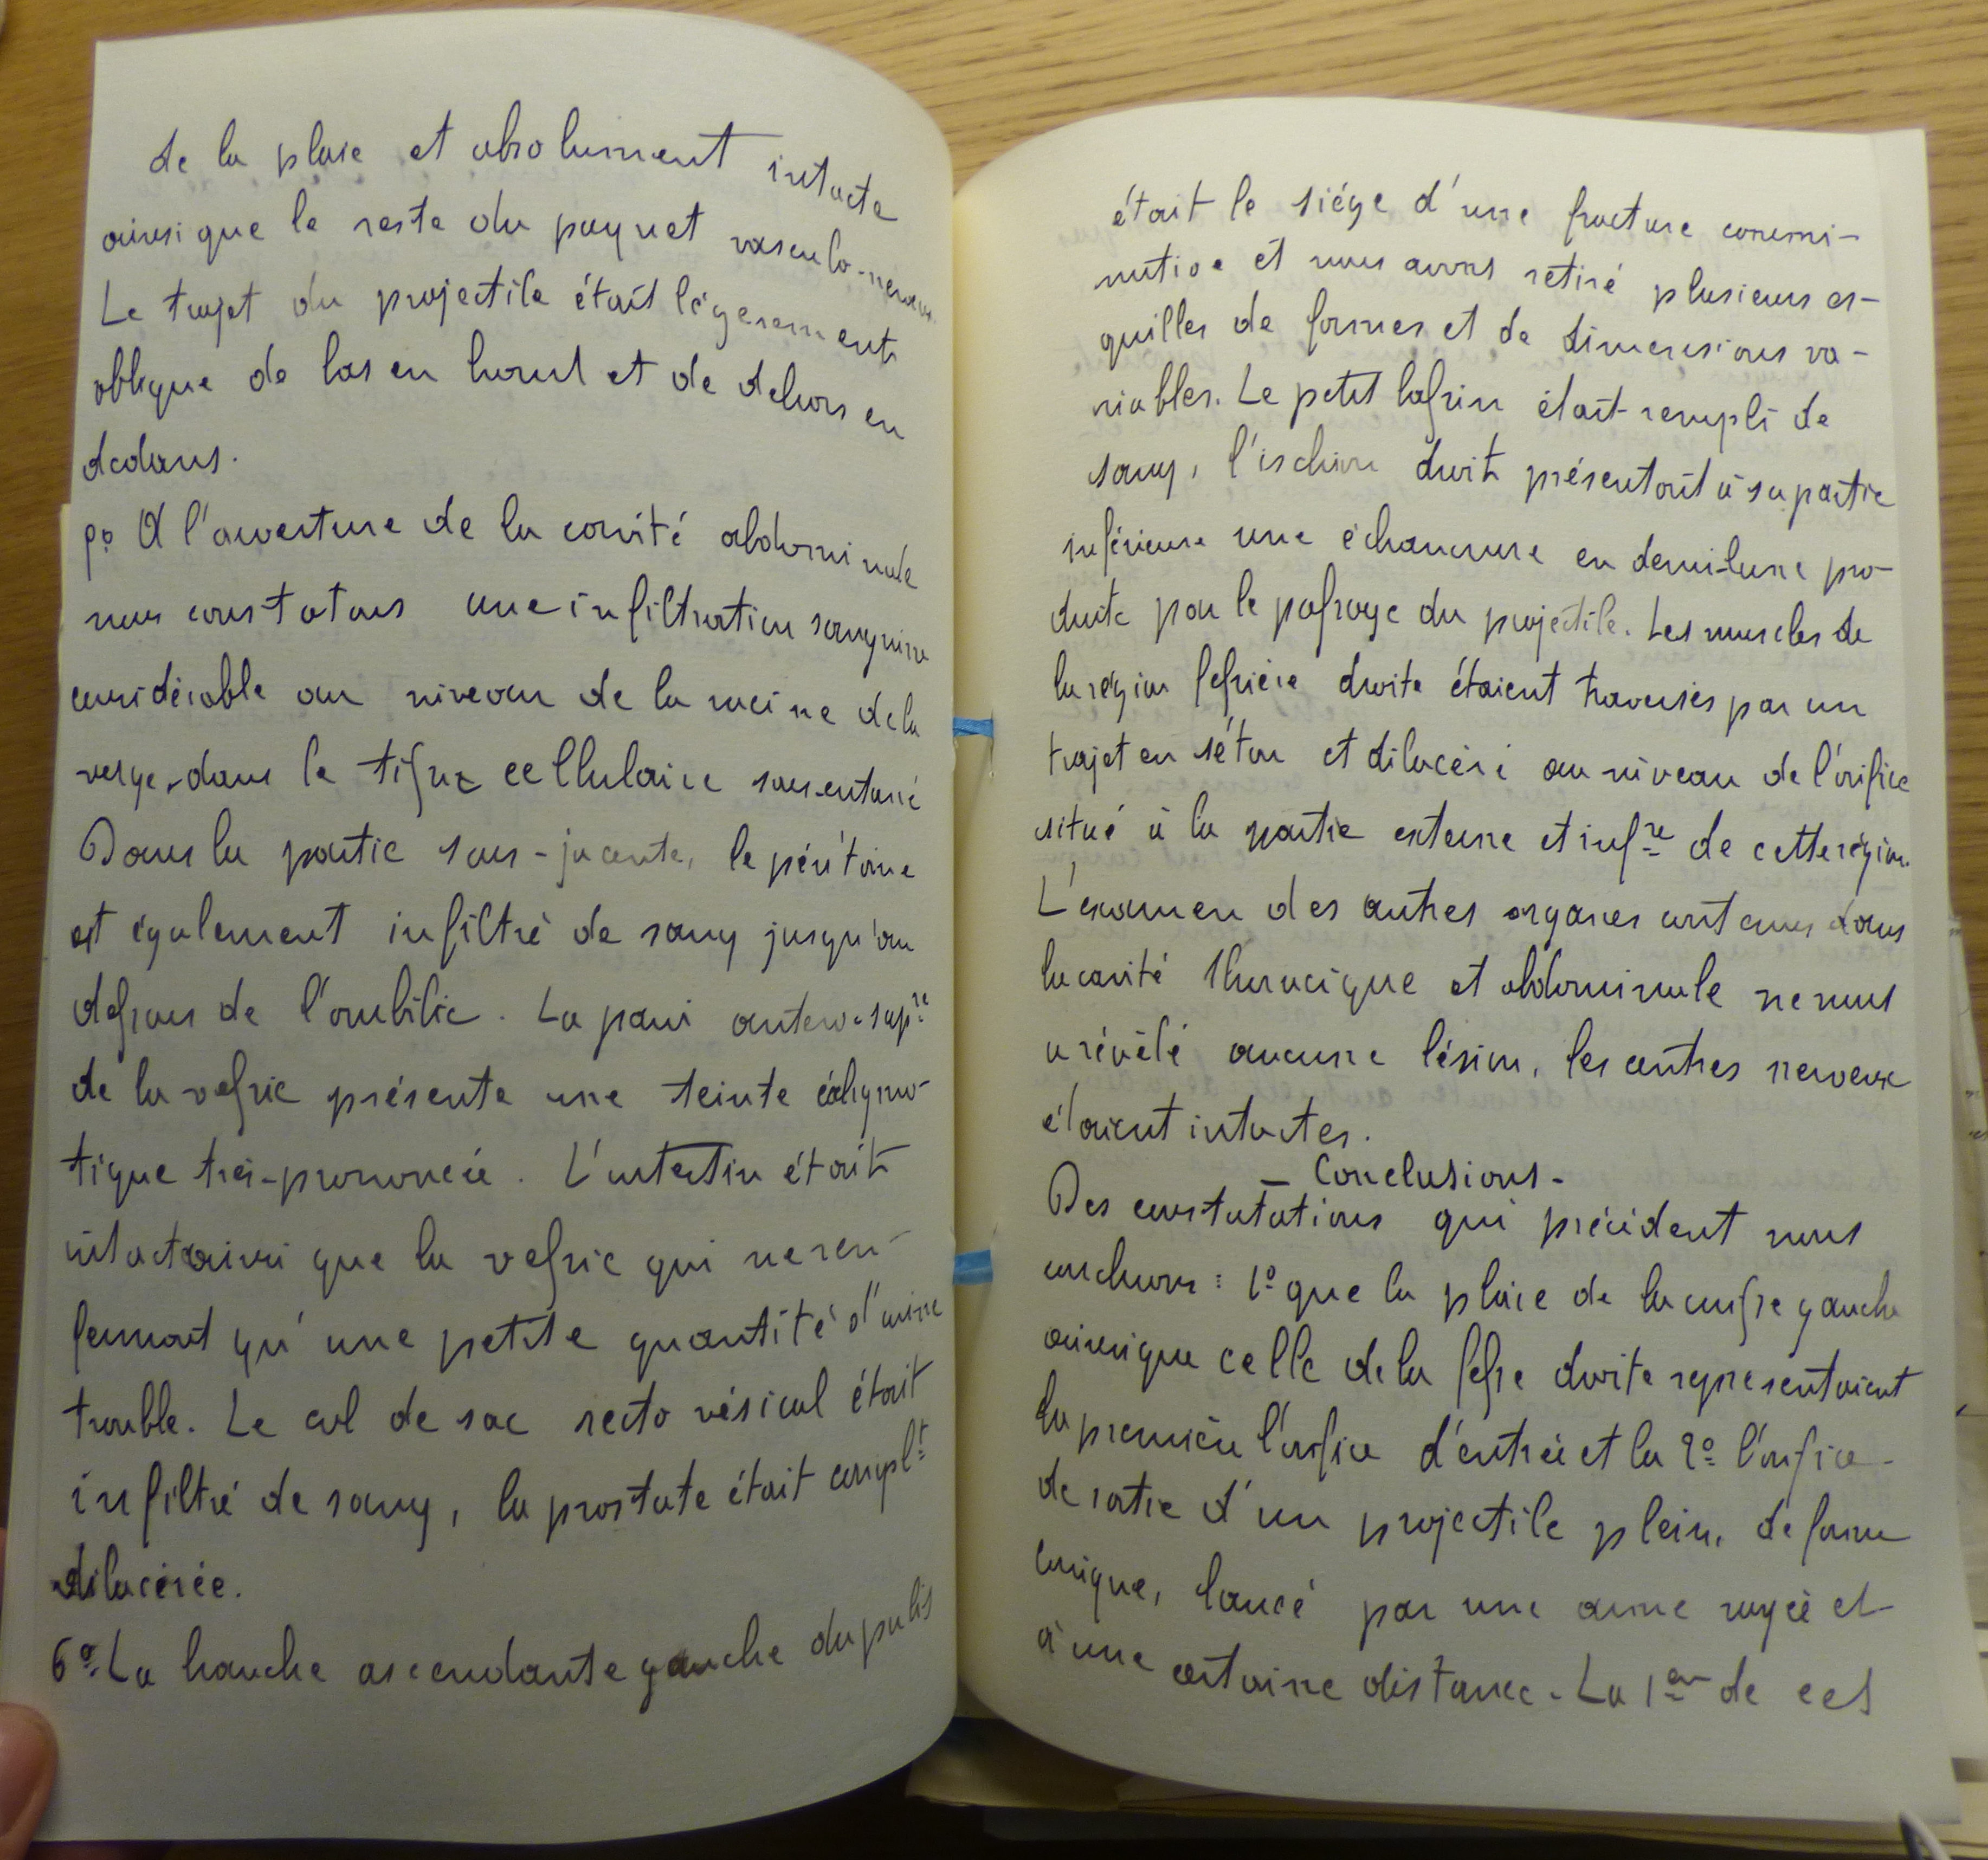 de la plaie et absolument intacte
ainsi que le reste du paquet vasculo-nerveux.
Le trajet du projectile était légèrement
oblique de bas en haut et de dehors en
dedans.
A l'ouverture de la cavité abdominale
nous constatons une infiltration sanguine
considérable au niveau de la racine de la
verge, dans le tissu cellulaire sous-cutané
Dans la partie sous-jacente, le péritoine
est également infiltré de sang jusqu'au
dessous de l'ombilic. La paroi antero-supre
de la vessie présente une teinte échymo-
tique très-prononcée. L'intestin était
intact ainsi que la vessie qui ne ren-
fermait qu'une petite quantité d'urine
trouble. Le cul de sac recto vésical était
infiltré de sang, la prostate était complt
dilacérée.
6º La branche ascendante gauche du pubis
était le siége d'une fracture commi-
nutive et nous avons retiré plusieurs es-
quilles de formes et de dimensions va-
riables. Le petit bassin était rempli de
sang, l'ischion droit présentait à sa partie
inférieure une échancrure en demi-lune pro-
duite par le passage du projectile. Les muscles de
la région fessière droite étaient traversés par un
trajet en séton et dilacéré au niveau de l'orifice
situé à la partie externe et infre de cette région.
L'examen des autres organes contenus dans
la cavité thoracique et abdominale ne nous
a révélé aucune lésion, les centres nerveux
étaient intactes.
- Conclusions -
Des constatations qui précédent nous
concluons : 1º que la plaie de la cuisse gauche
ainsi que celle de la fesse droite représentaient
la première l'orifice d'entrée et la 2º l'orifice
de sortie d'un projectile plein, de forme
conique, lancé par une arme rayée et
à une certaine distance. La 1ere de ces